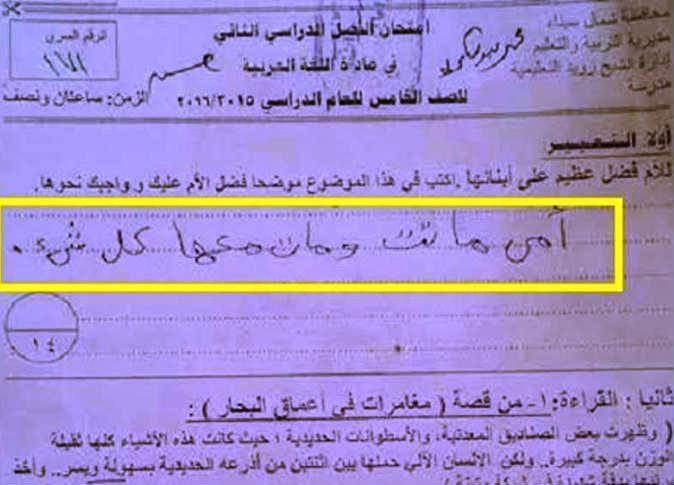 محافظة شمال سيناء
مديرية التربية والتعليم
إدارة الشيخ زويد التعليمية
مدرسة
امتحان الفصل الدراسي الثاني
في مادة اللغة العربية
للصف الخامس للعام الدراسي ٢٠١٦/٢٠١٥
الرقم السري
الزمن: ساعتان ونصف
أولا: التعبير
للأم فضل عظيم على أبنائها .اكتب في هذا الموضوع موضحا فضل الأم عليك وواجبك نحوها.
أمي ماتت ومات معها كل شيء .
١٤
ثانيا : القراءة: ١- من قصة ( مغامرات في أعماق البحار ) :
( وظهرت بعض الصناديق المعدنية، والأسطوانات الحديدية ؛ حيث كانت هذه الأشياء كلها ثقيلة
الوزن بدرجة كبيرة.. ولكن الإنسان الآلي حملها بين اثنتين من أذرعه الحديدية بسهولة ويسر.. وأخذ